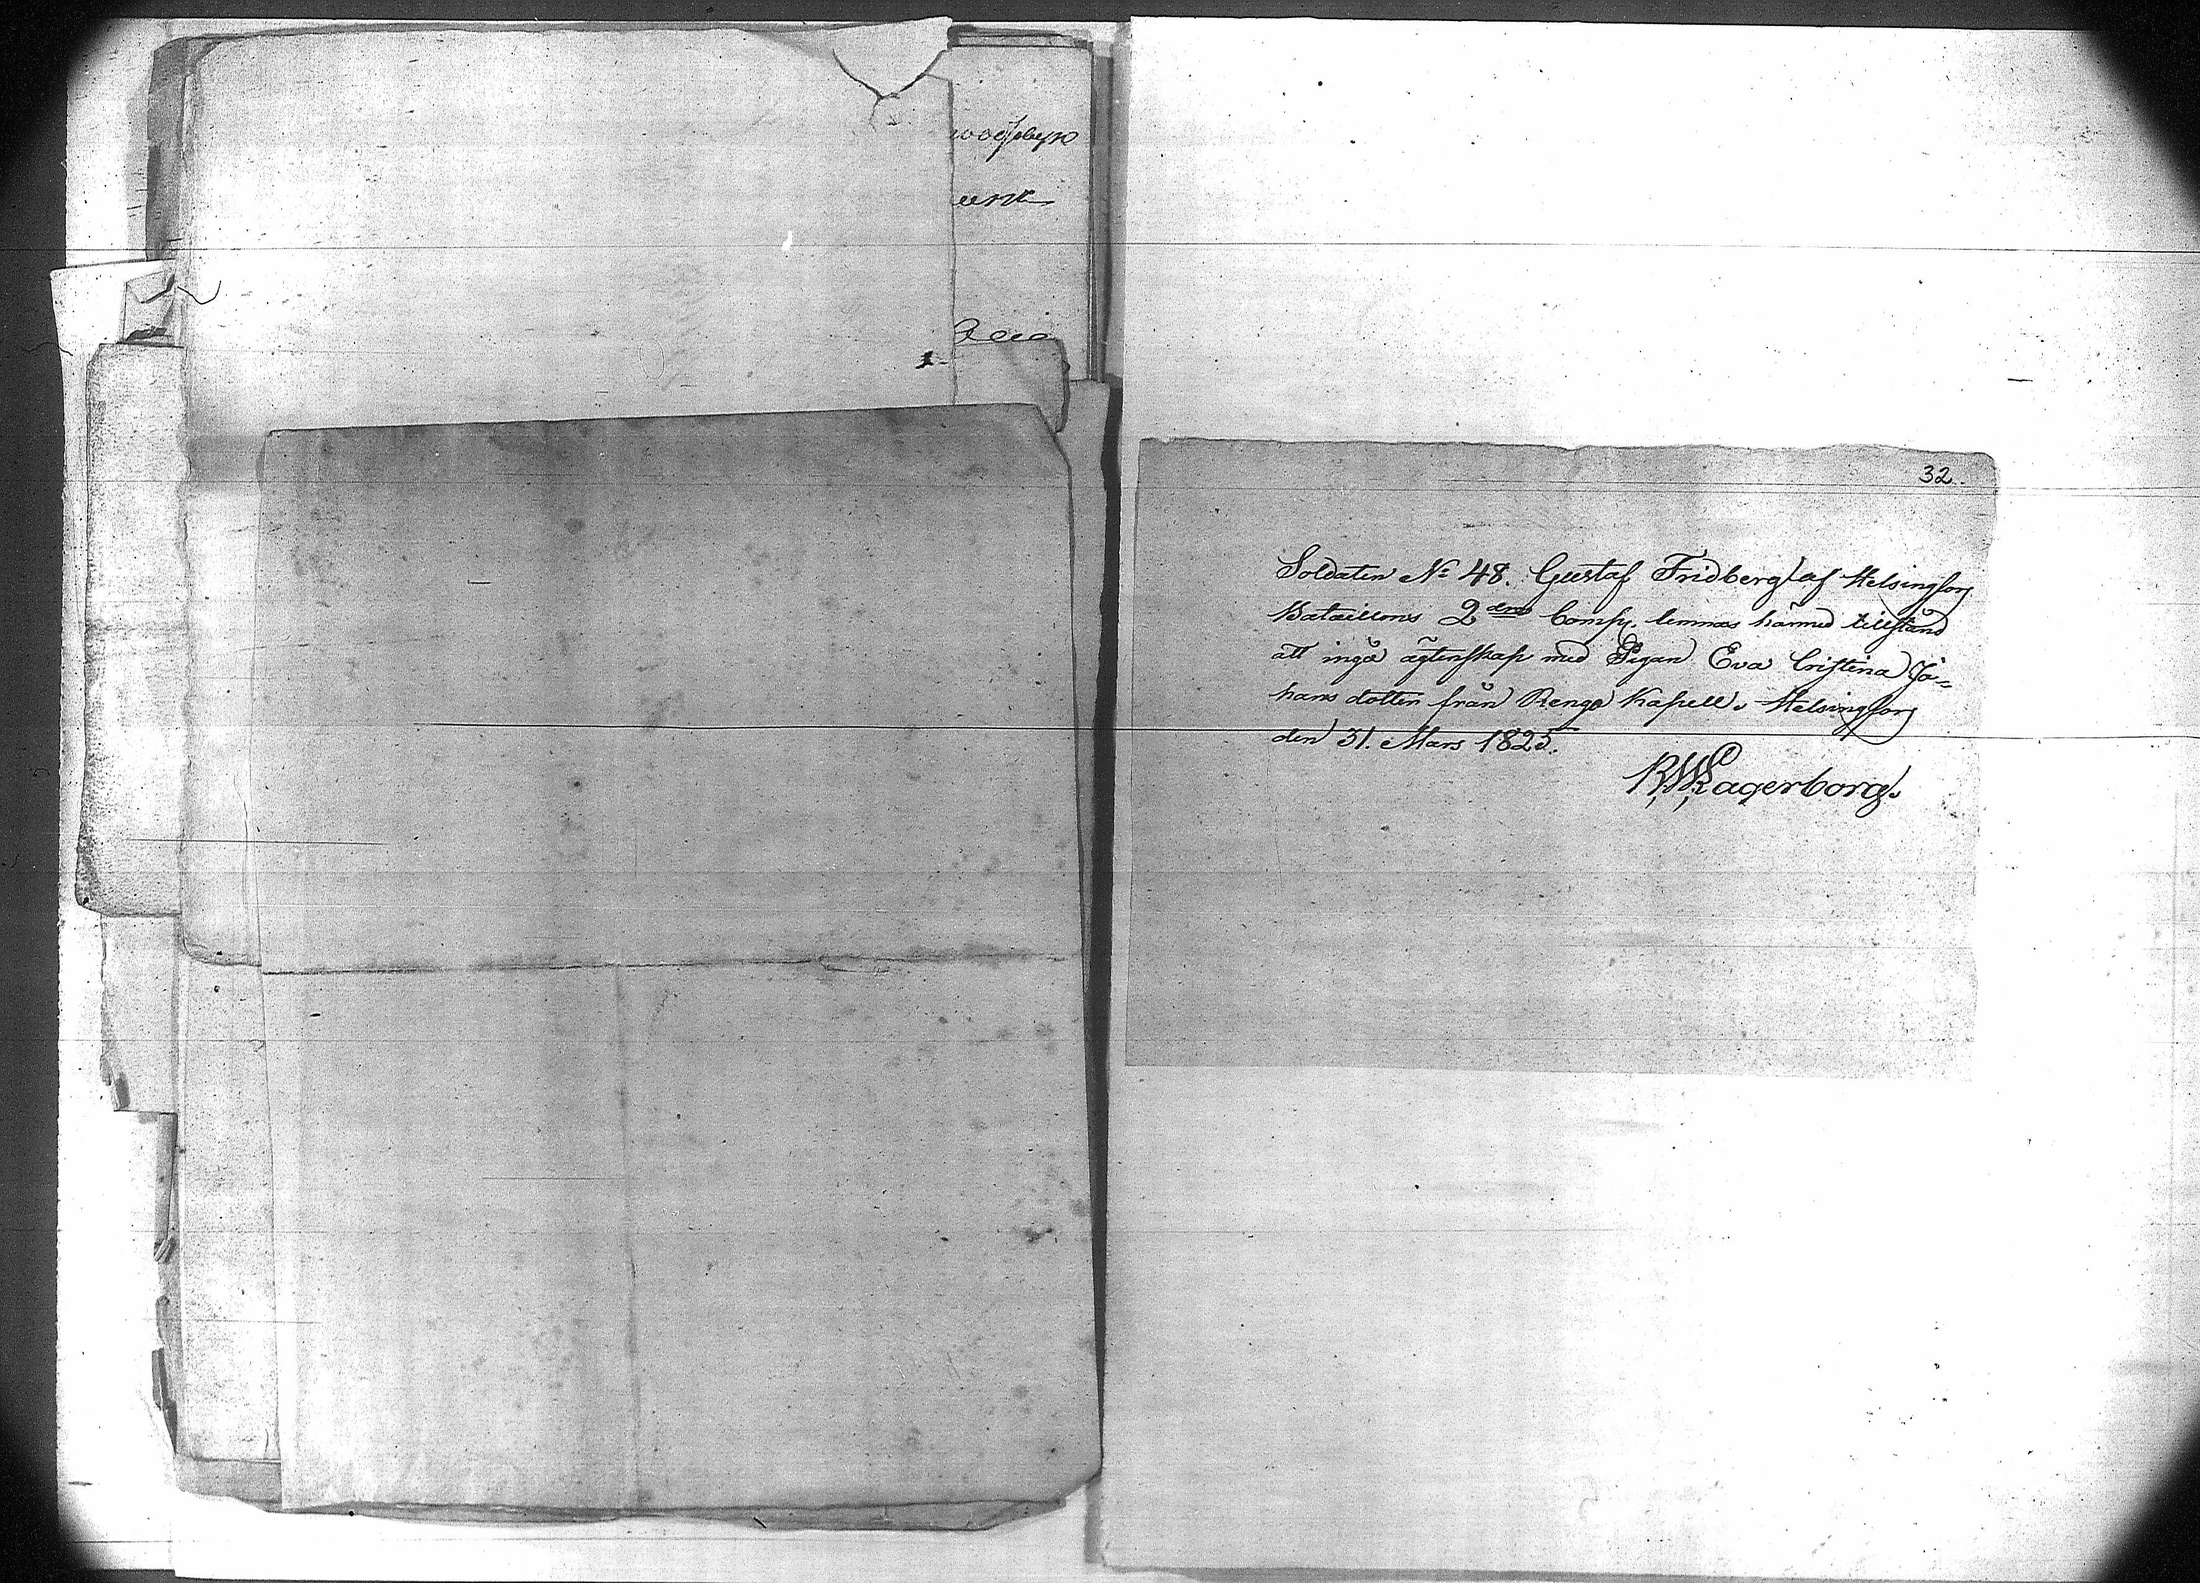 32.
Soldaten No 48. Gustaf Fridberg af Helsingfors
Bataillons 2dra Comp. lemnas härmed tillstånd
att ingå ägtenskap med Pigan Eva Cristina Jo=
hans dotter från Rengo Kapell. Helsingfors
den 31. Mars 1825.
RWLagerborg.